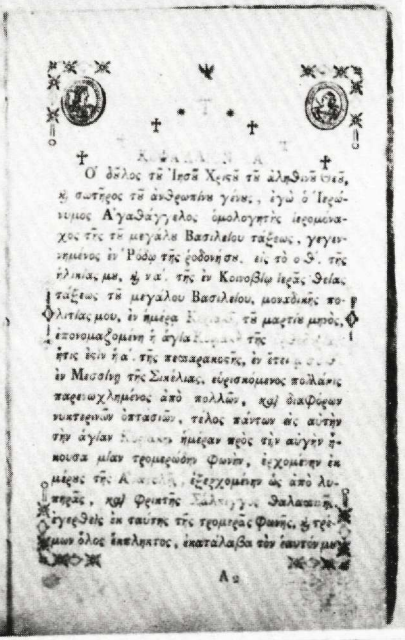 ΚΕΦΑΛΑΙΟΝ Α
Ὁ δȣ̃λος τȣ͂ Ἰησȣ͂ Χριςȣ͂ τȣ͂ ἀληθινȣ͂ Θεȣ͂,
ϗ σωτῆρος τȣ͂ ἀνθρωπίνȣ γένȣς, ἐγὼ ὁ Ἱερώ-
νυμος Ἀγαθάγγελος ὁμολογητὴς ἱερομόνα-
χος τῆς τȣ͂ μεγάλȣ Βασιλείου τάξεως, γεγεν-
νημένος ἐν Ῥόδῳ τῆς ῥοδονήσȣ. εἰς τὸ οθ΄. τῆς
ἡλικίας μȣ, ϗ να΄. τῆς ἐν Κοινοβίῳ ἱερᾶς θείας
τάξεως τȣ͂ μεγάλου Βασιλείου, μοναδικῆς πο-
λιτίας μου, ἐν ἡμέρα τȣ͂ μαρτίου μηνὸς,
ἐπονομαζομένη ἡ ἁγία τῆς
ἥτις ἐςὶν ἡ α΄. τῆς τεσσαρακοςῆς, ἐν ἔτει
ἐν Μεσσίνῃ τῆς Σικελίας, εὑρισκόμενος πολλάκις
παρενωχλημένος ἀπὸ πολλῶν, καὶ διαφόρων
νυκτερινῶν ὀπτασιῶν, τέλος πάντων εἰς αὐτὴν
τὴν ἁγίαν Κυριακὴν ἡμέραν πρὸς τὴν αὐγὴν ἤ-
κουσα μίαν τρομερώδη φωνὴν, ἐρχομένην ἐκ
μέρȣς τῆς Ἀνατολῆς, ἐξερχομένην ὡς ἀπὸ λυ-
πηρᾶς, καὶ φρικτῆς Σάλπιγγος θαλασσῆς,
ἐγερθεὶς ἐκ ταύτης τῆς τρομερᾶς φωνῆς, ϗ τρέ-
μων ὅλος ἔκπληκτος, ἐκατάλαβα τὸν ἑαυτόν μȣ
Α2